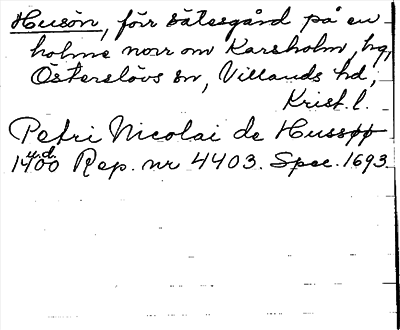 Husön, förr sätesgård på en
holme norr om Karsholm, hg,
Österslövs sn, Villands hd,
Krist. l.
Petri Nicolai de Hussøø
u.d.
1400 Rep. nr 4403. Spec. 1693.